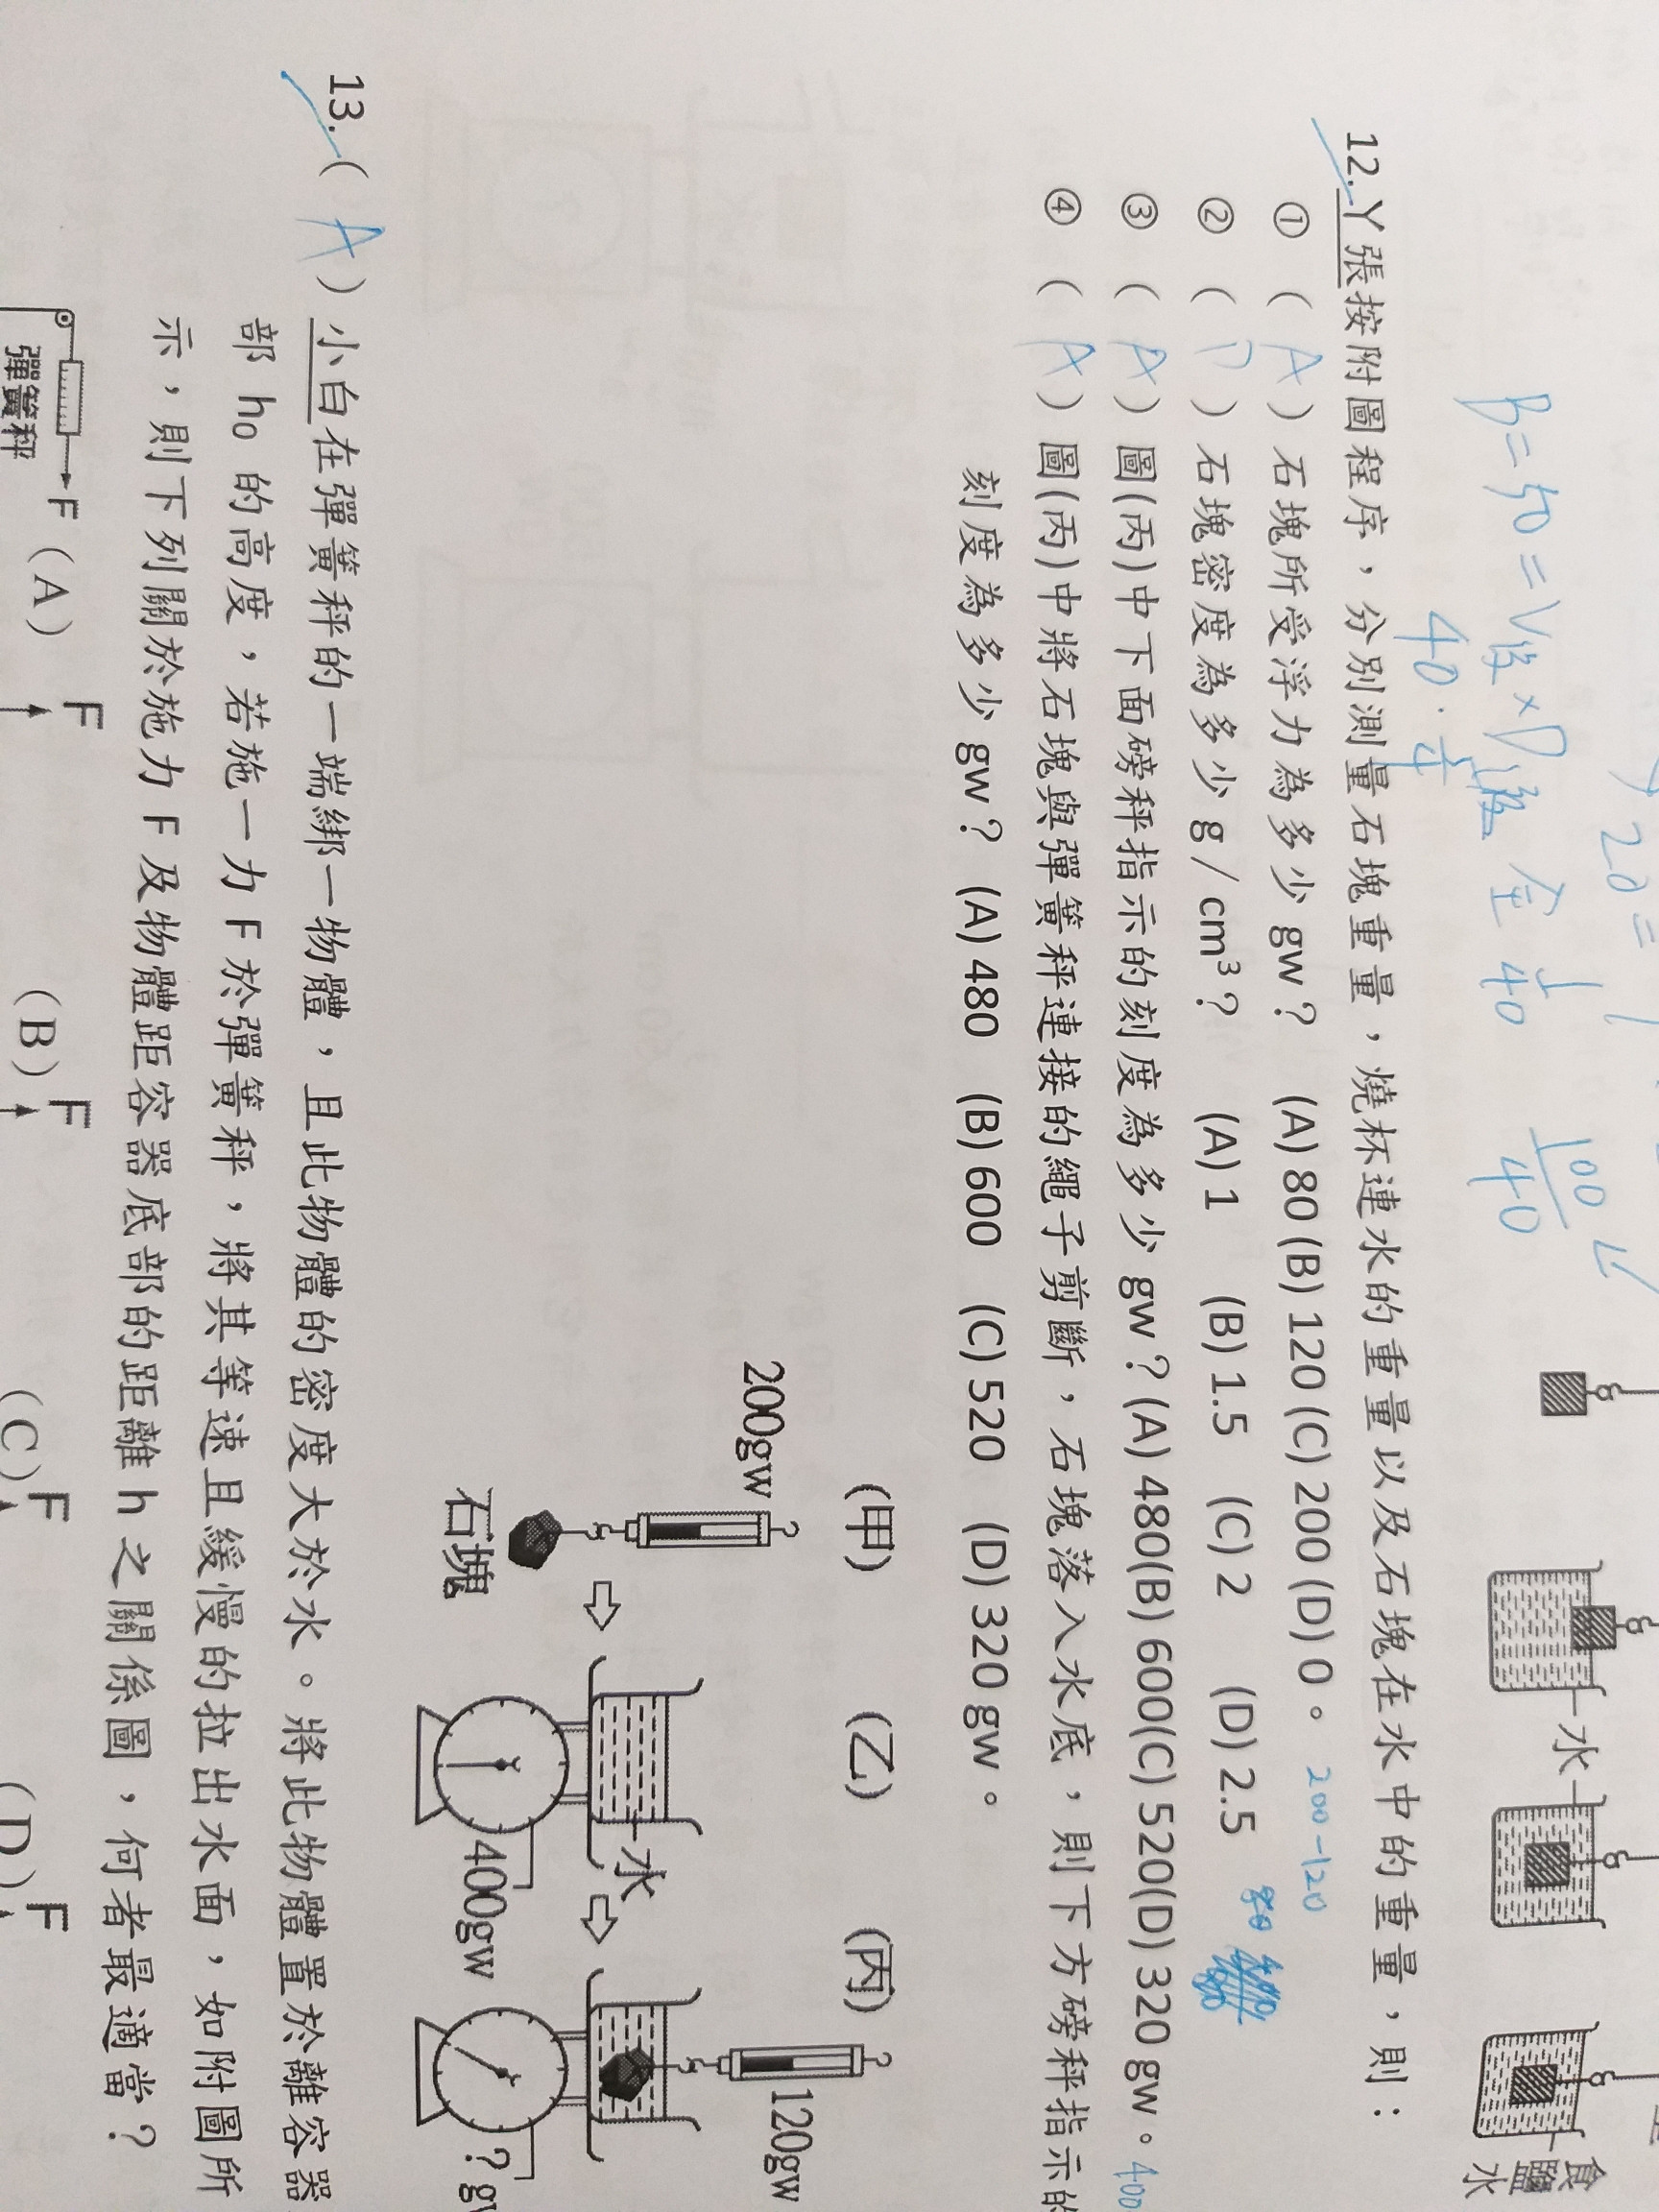 20=
B=50=V液×D液 全 40
100
40
40.
水
食鹽水
12.丫張按附圖程序，分別測量石塊重量，燒杯連水的重量以及石塊在水中的重量，則：
①（A）石塊所受浮力為多少gw？ (A) 80 (B) 120 (C) 200 (D) 0。 200-120
②（D）石塊密度為多少g/cm³？ (A) 1 (B) 1.5 (C) 2 (D) 2.5 80
③（A）圖(丙)中下面磅秤指示的刻度為多少gw？(A) 480(B) 600(C) 520(D) 320 gw。400
④（A）圖(丙)中將石塊與彈簧秤連接的繩子剪斷，石塊落入水底，則下方磅秤指示的
刻度為多少gw？ (A) 480 (B) 600 (C) 520 (D) 320 gw。
(甲) (乙) (丙)
200gw
120gw
水
石塊
400gw
?
13.（A）小白在彈簧秤的一端綁一物體，且此物體的密度大於水。將此物體置於離容器
部 h₀ 的高度，若施一力 F 於彈簧秤，將其等速且緩慢的拉出水面，如附圖所
示，則下列關於施力 F 及物體距容器底部的距離 h 之關係圖，何者最適當？
F
彈簧秤
(A) F
(B) F
(C) F
(D) F